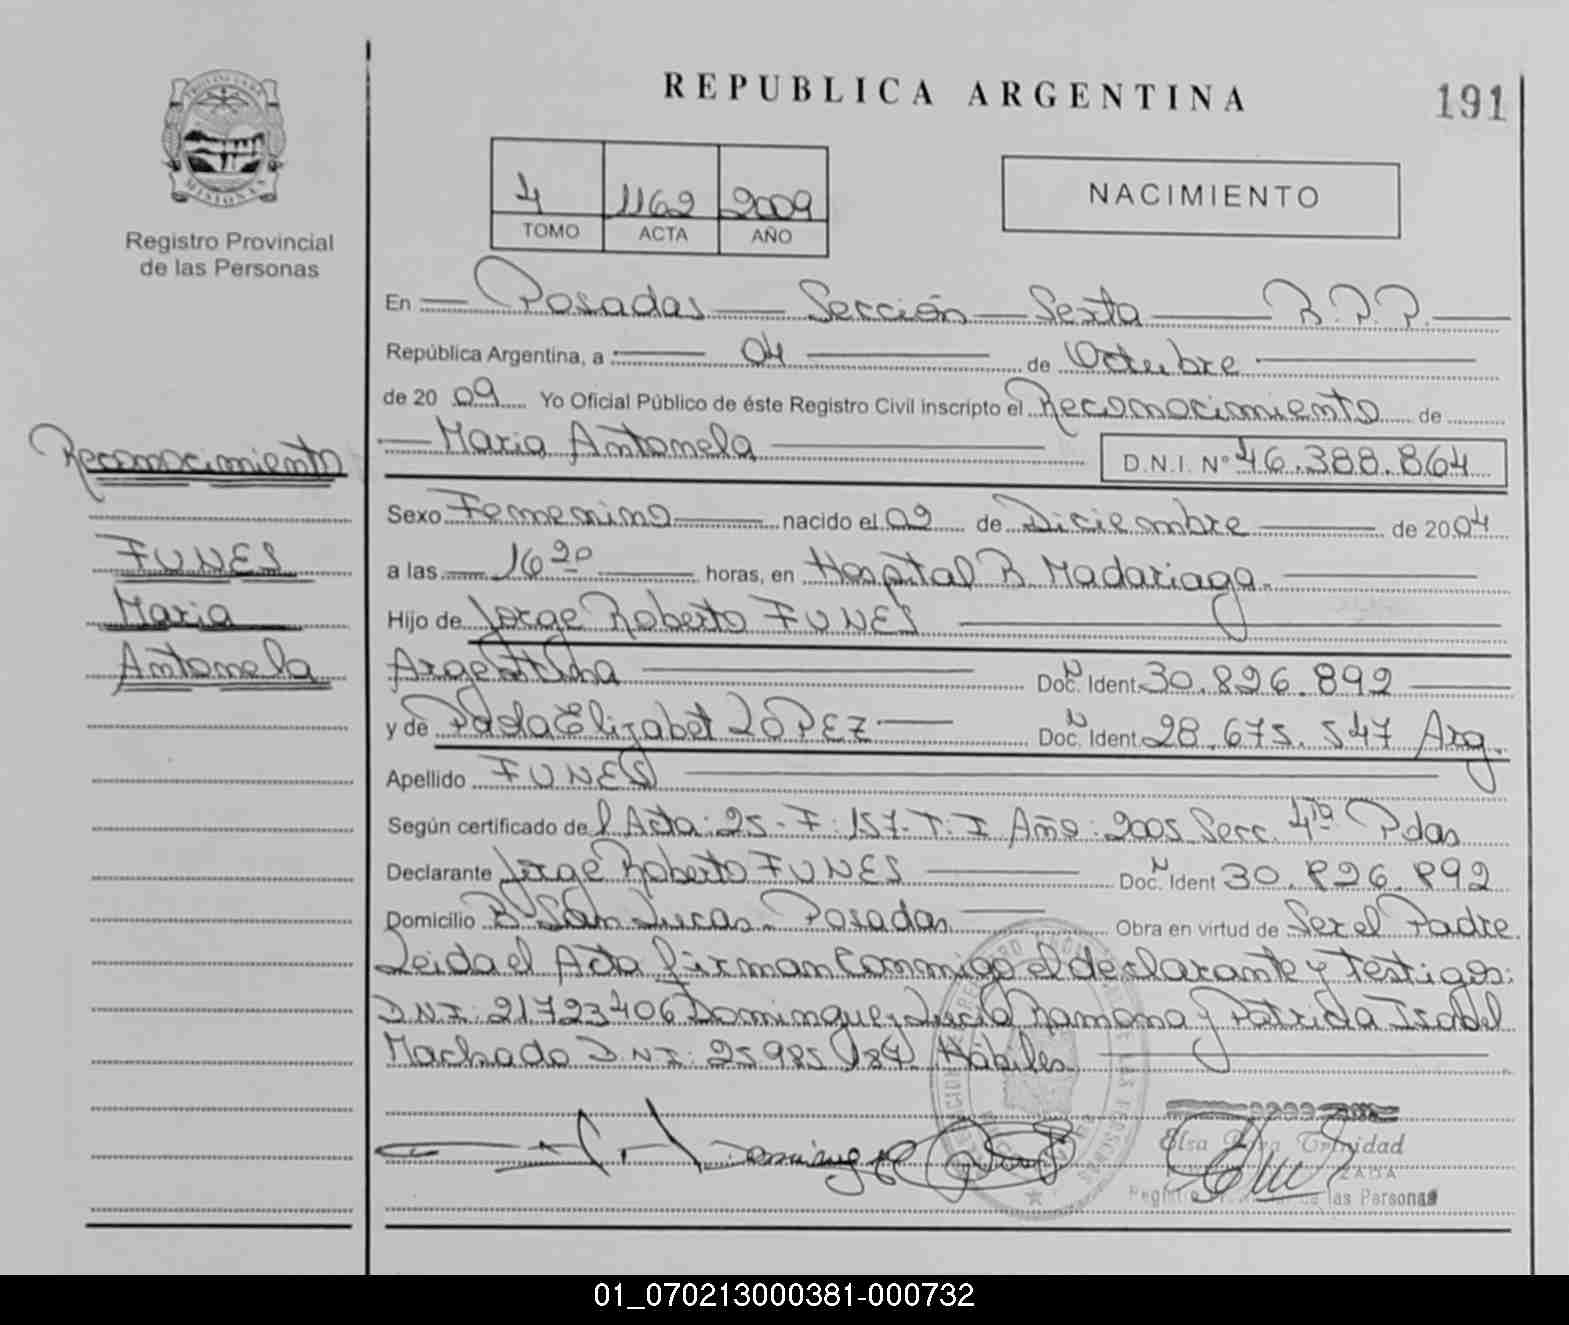 REPUBLICA ARGENTINA
191
PROVINCIA DE
MISIONES
Registro Provincial
de las Personas
4 1162 2009
TOMO ACTA AÑO
NACIMIENTO
En Posadas Sección Sexta R.P.P.
República Argentina, a 04 de Octubre
de 20 09 Yo Oficial Público de éste Registro Civil inscripto el Reconocimiento de
Maria Antonela D.N.I. Nº 46.388.864
Reconocimiento
FUNES
Maria
Antonela
Sexo Femenino nacido el 09 de Diciembre de 20 04
a las 16 20 horas, en Hospital R. Madariaga.
Hijo de Jorge Roberto FUNES
Argentina Doc. N Ident. 30.826.892
y de Paola Elizabet LOPEZ Doc. N Ident. 28.675.547 Arg.
Apellido FUNES
Según certificado de l Acta: 25 - F: 157 - T. I Año: 2005 Secc. 4ta Pdas
Declarante Jorge Roberto FUNES Doc. N Ident 30.826.892
Domicilio Bº San Lucas. Posadas Obra en virtud de Ser el Padre
Leida el Acta firman Conmigo el declarante y Testigos:
D.N.I: 21723406 Dominguez Lucia Ramona y Patricia Isabel
Machado D.N.I: 25985184 Hábiles
Elsa Trinidad
Registro las Personas
01_070213000381-000732